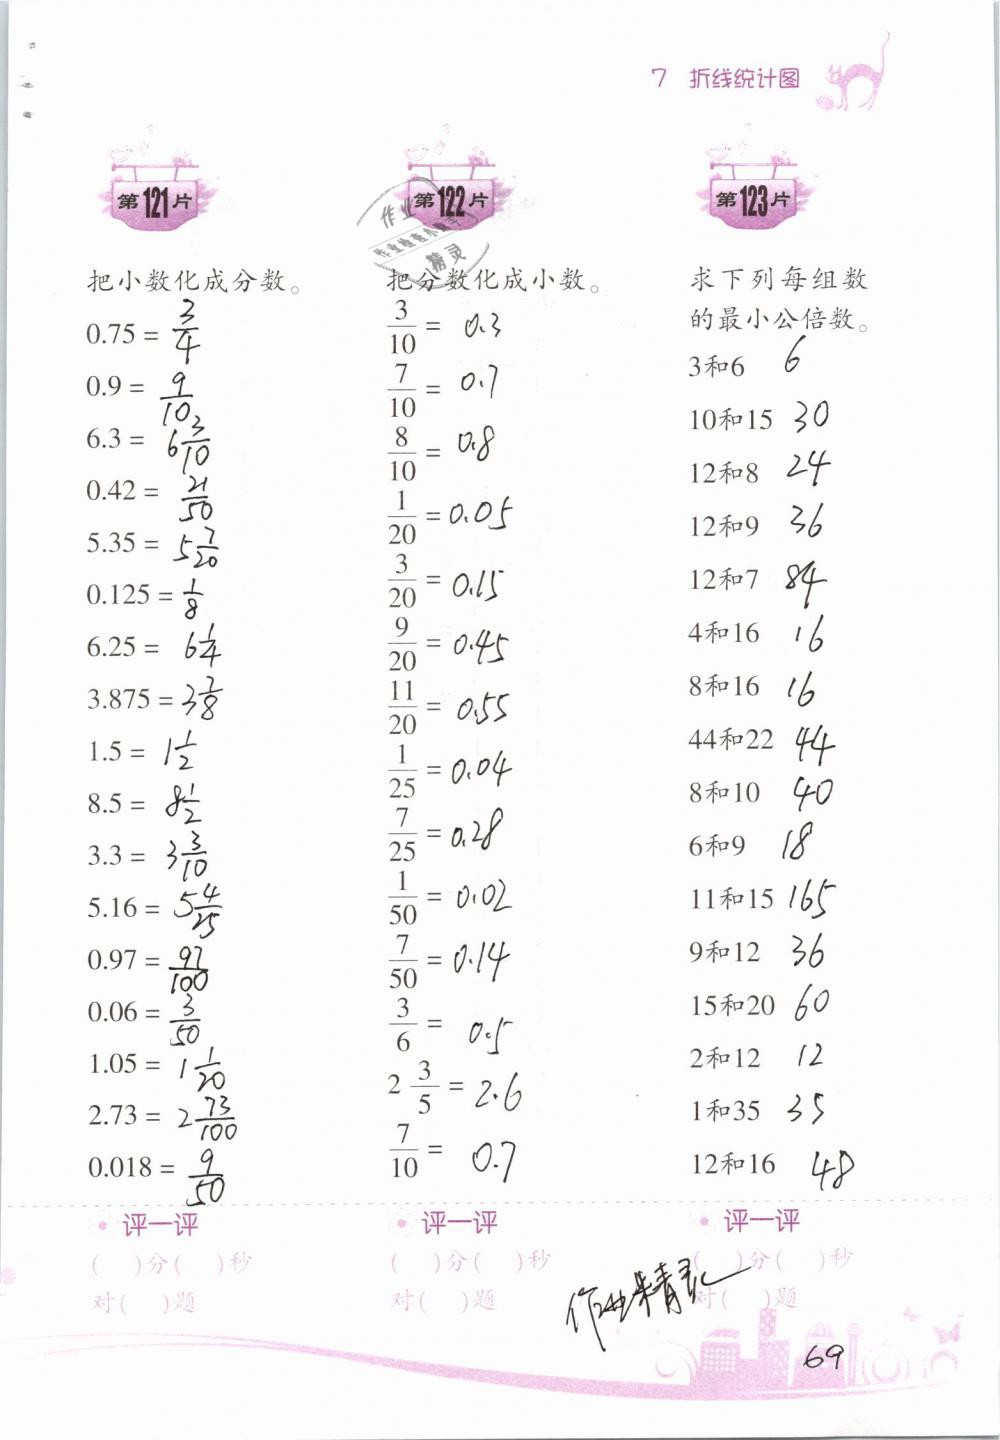 7 折线统计图
第121片
把小数化成分数。
0.75 = 3/4
0.9 = 9/10
6.3 = 6 3/10
0.42 = 21/50
5.35 = 5 7/20
0.125 = 1/8
6.25 = 6 1/4
3.875 = 3 7/8
1.5 = 1 1/2
8.5 = 8 1/2
3.3 = 3 3/10
5.16 = 5 4/25
0.97 = 97/100
0.06 = 3/50
1.05 = 1 1/20
2.73 = 2 73/100
0.018 = 9/50
评一评
( )分( )秒
对( )题
第122片
作业
作业检查小帮手
精灵
把分数化成小数。
3/10 = 0.3
7/10 = 0.7
8/10 = 0.8
1/20 = 0.05
3/20 = 0.15
9/20 = 0.45
11/20 = 0.55
1/25 = 0.04
7/25 = 0.28
1/50 = 0.02
7/50 = 0.14
3/6 = 0.5
2 3/5 = 2.6
7/10 = 0.7
评一评
( )分( )秒
对( )题
第123片
求下列每组数
的最小公倍数。
3和6 6
10和15 30
12和8 24
12和9 36
12和7 84
4和16 16
8和16 16
44和22 44
8和10 40
6和9 18
11和15 165
9和12 36
15和20 60
2和12 12
1和35 35
12和16 48
评一评
( )分( )秒
对( )题
作业精灵
69